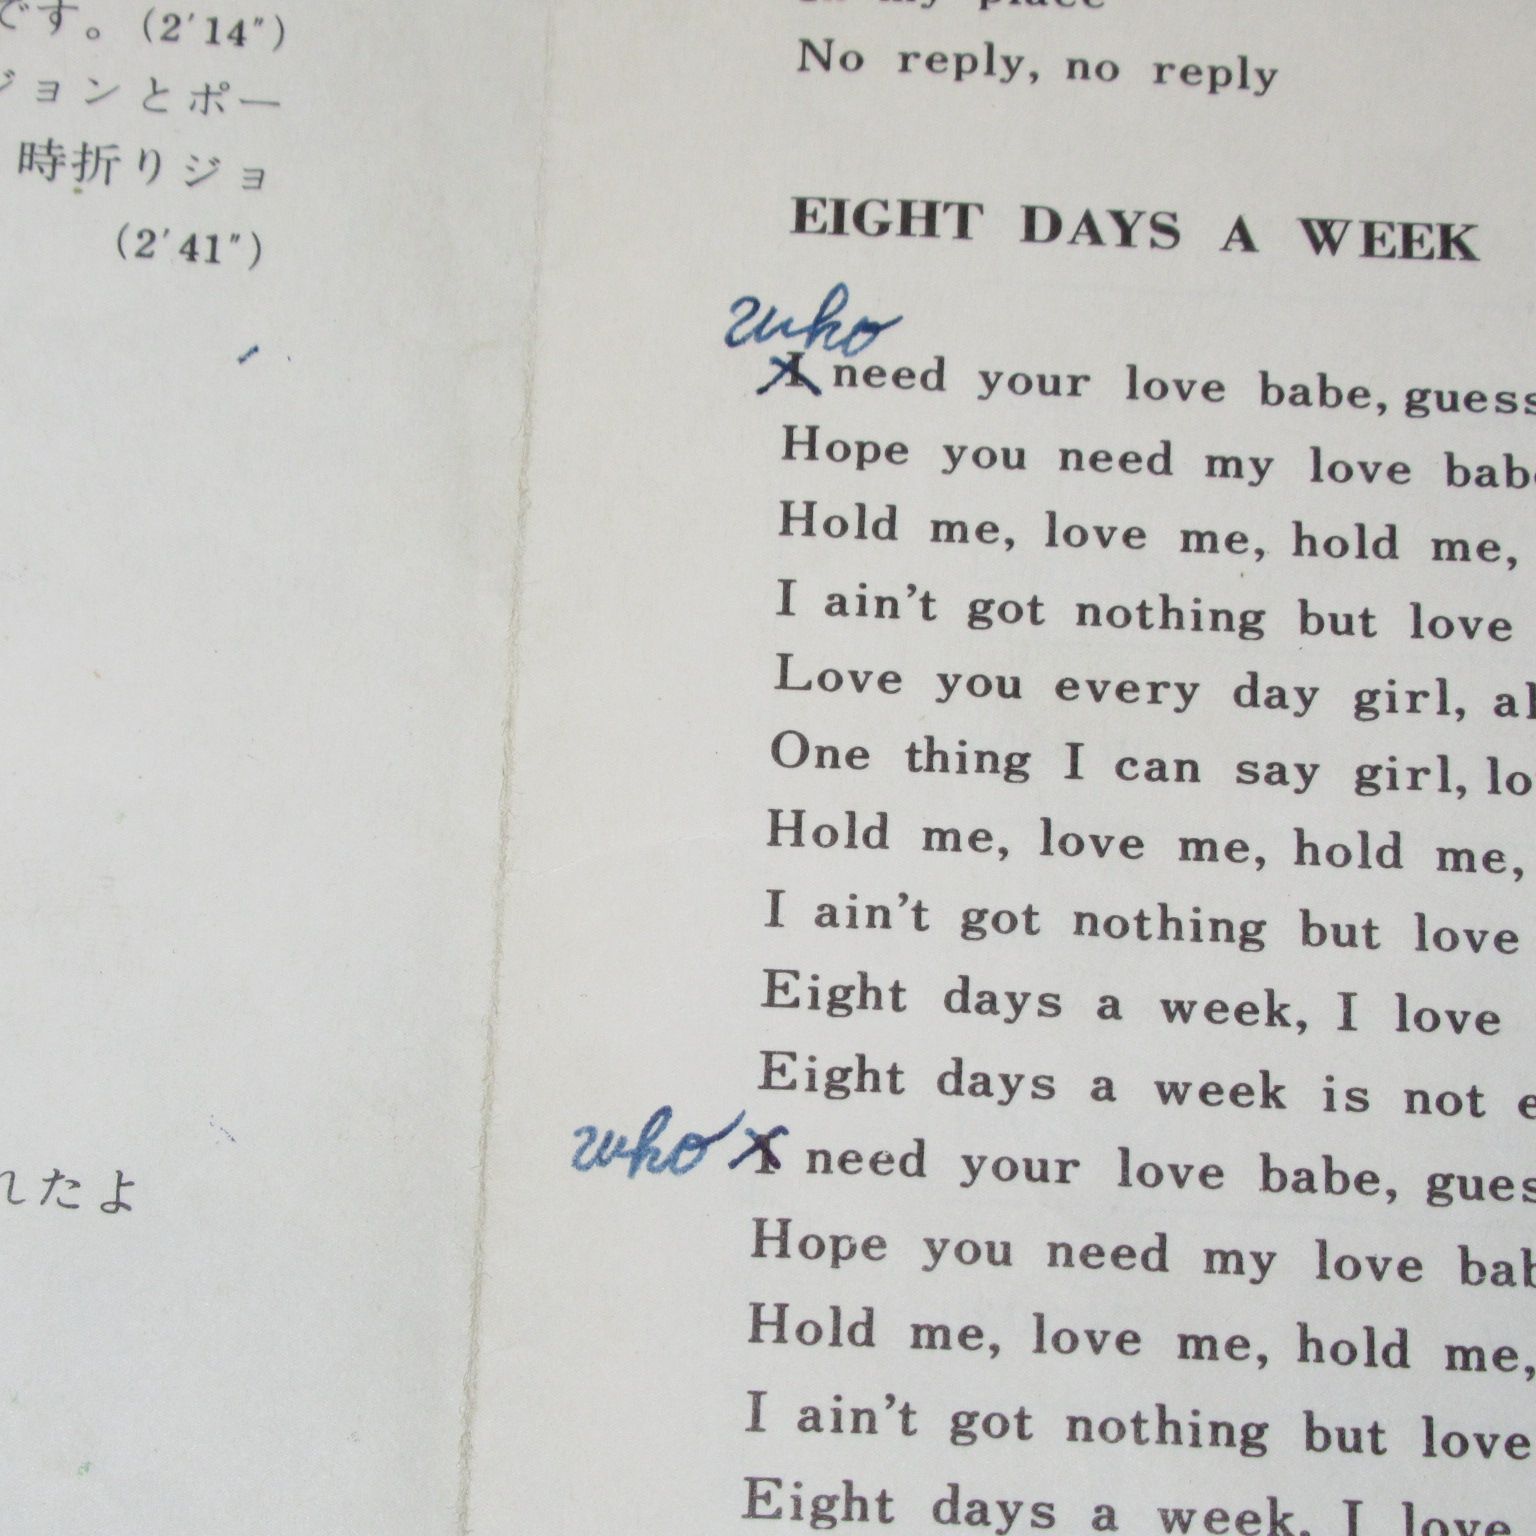 です。(2′14″)
ジョンとポー
時折りジョ
(2′41″)
れたよ
in my place
No reply, no reply
EIGHT DAYS A WEEK
who
I need your love babe, guess
Hope you need my love babe
Hold me, love me, hold me,
I ain't got nothing but love
Love you every day girl, al
One thing I can say girl, lo
Hold me, love me, hold me,
I ain't got nothing but love
Eight days a week, I love
Eight days a week is not e
who I need your love babe, gues
Hope you need my love bab
Hold me, love me, hold me,
I ain't got nothing but love
Eight days a week, I love